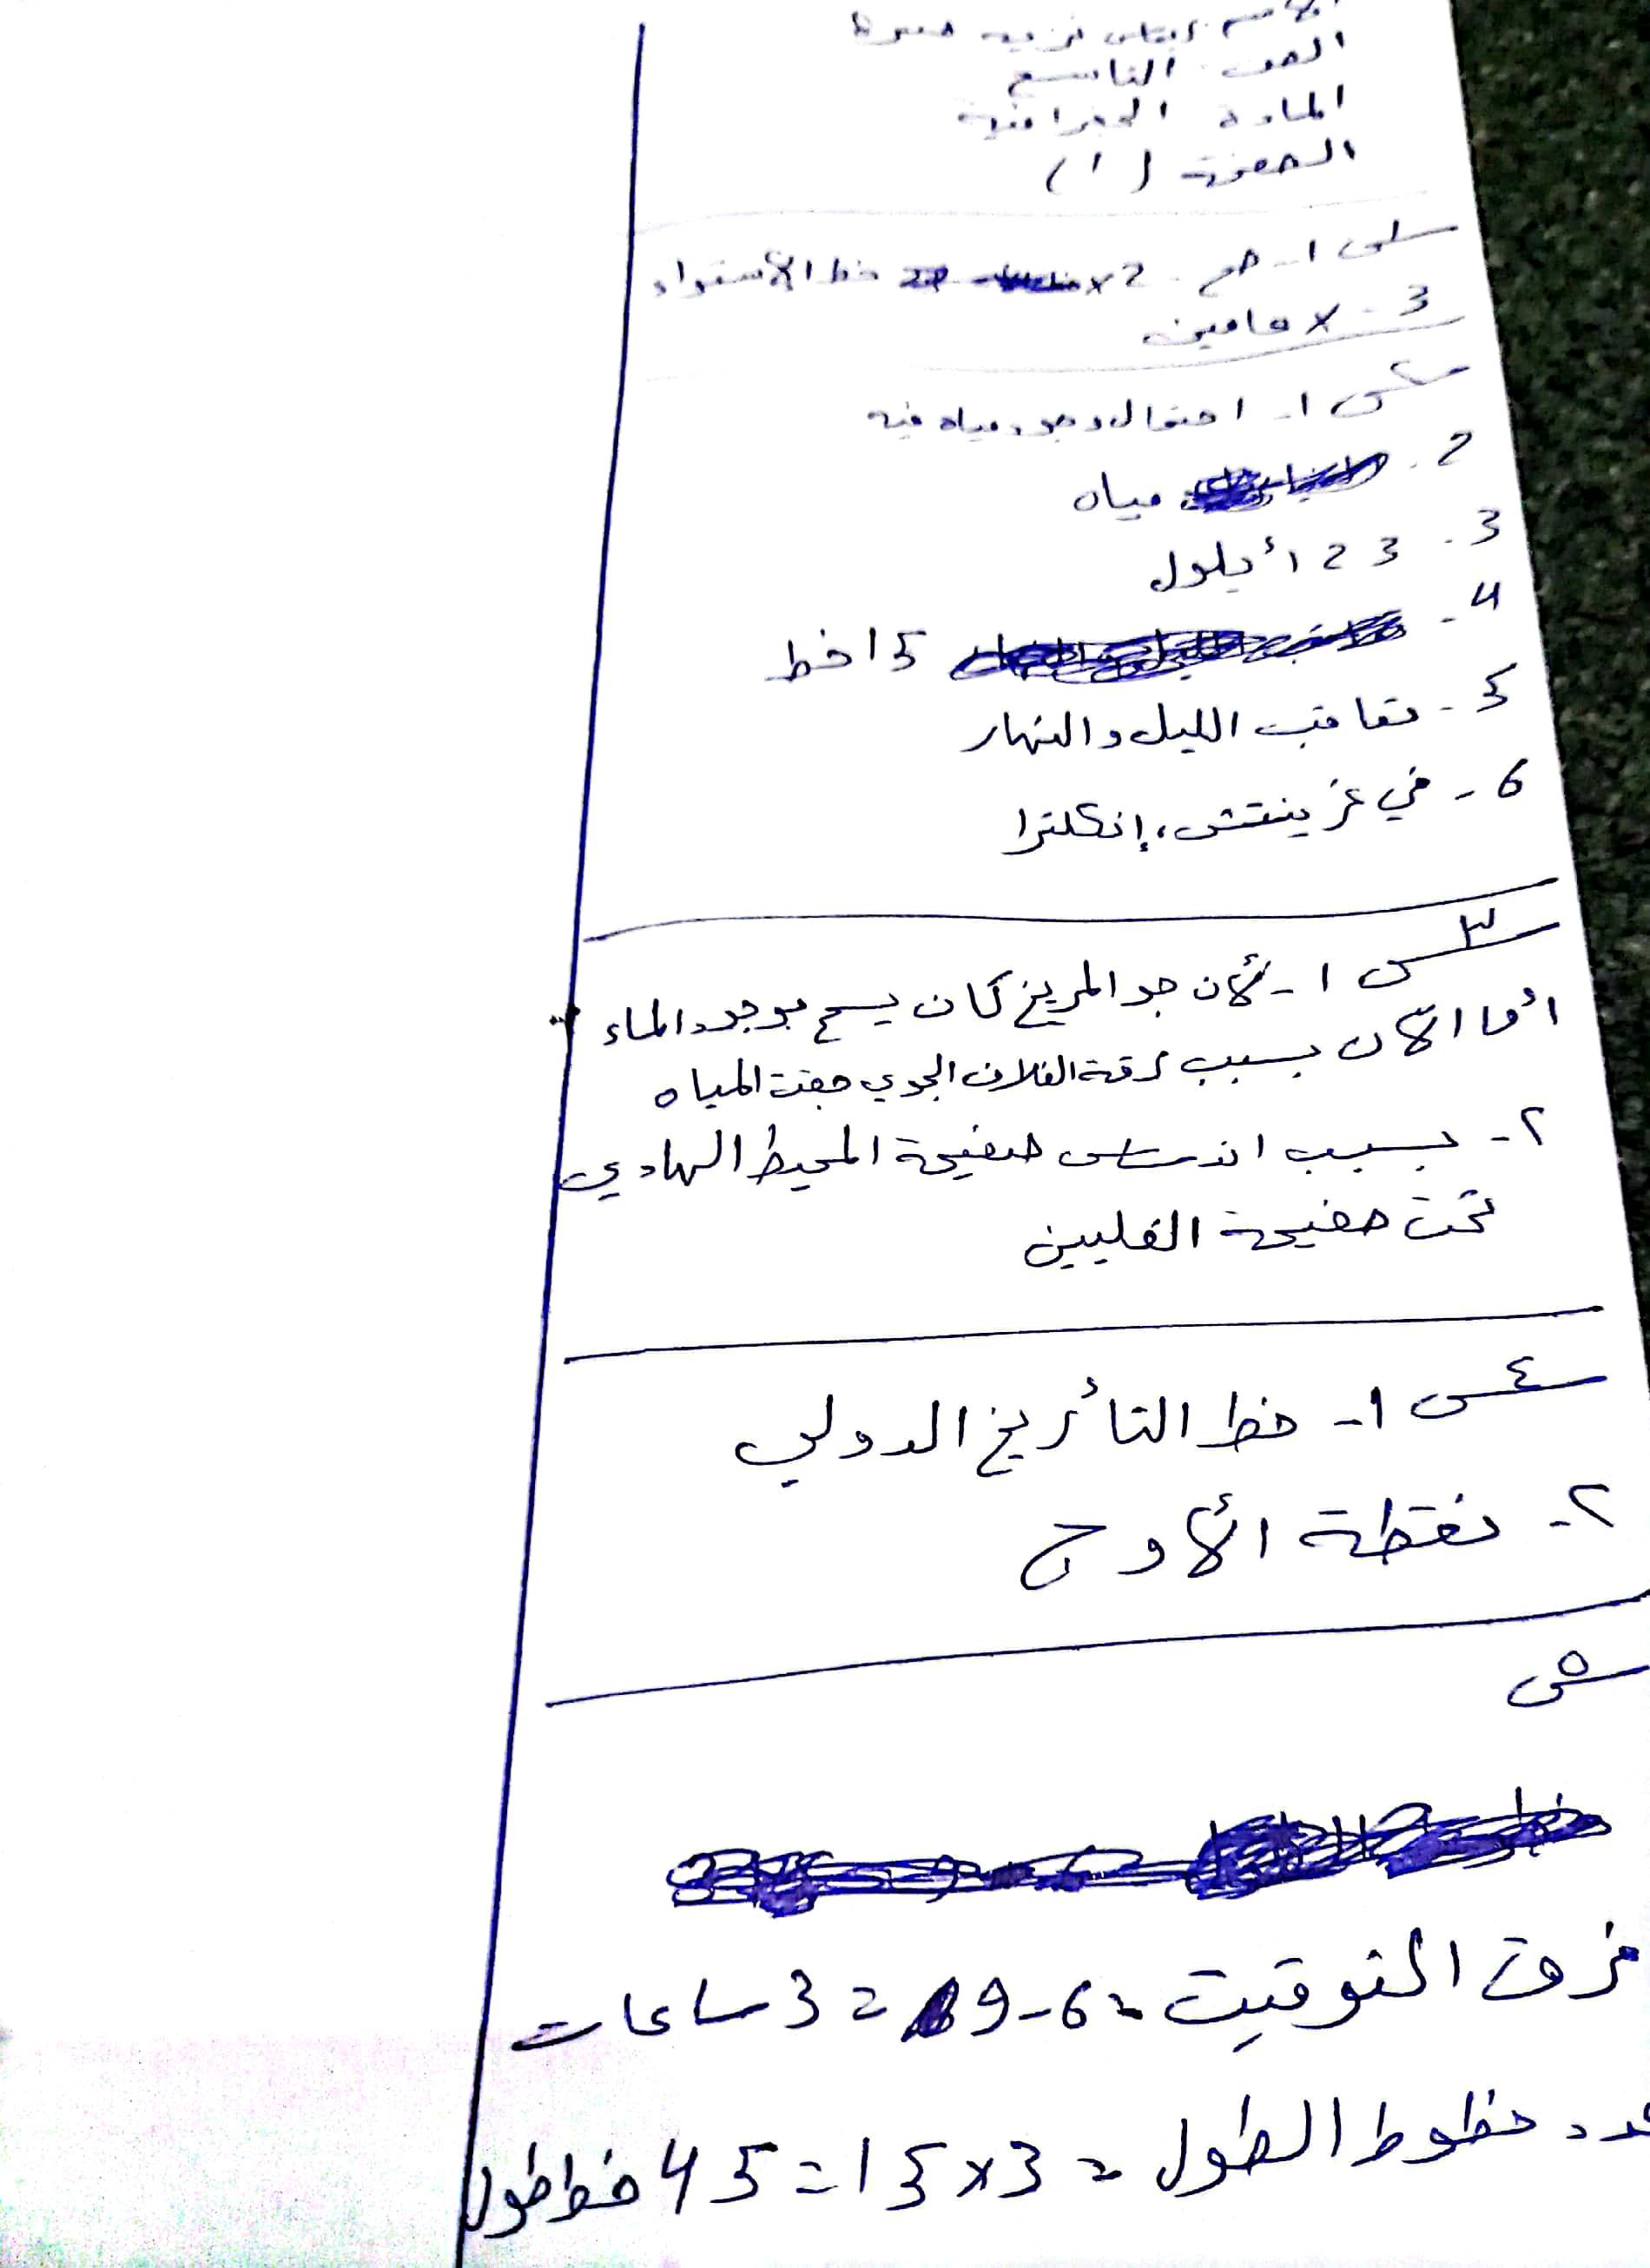 الصف التاسع
المادة الجغرافية
الصفحة (١)
س١ 1- صح - 2 x خط الأستواء
3 - x عامين
س٢ 1- احتمال وجود مياه فيه
2 - مياه
3 - 23 أيلول
4 - 15 خط
5 - تعاقب الليل والنهار
6 - في غرينتش، إنكلترا
س٣ 1 - لأن جو المريخ كان يسمح بوجود الماء
أما الآن بسبب رقة الغلاف الجوي جفت المياه
٢ - بسبب اندساس صفيحة المحيط الهادي
تحت صفيحة الفلبين
س٤ 1- خط التأريخ الدولي
٢- نقطة الأوج
س٥
فرق التوقيت = 6-9 = 3 ساعات
عدد خطوط الطول = 3x15 = 45 خط طول